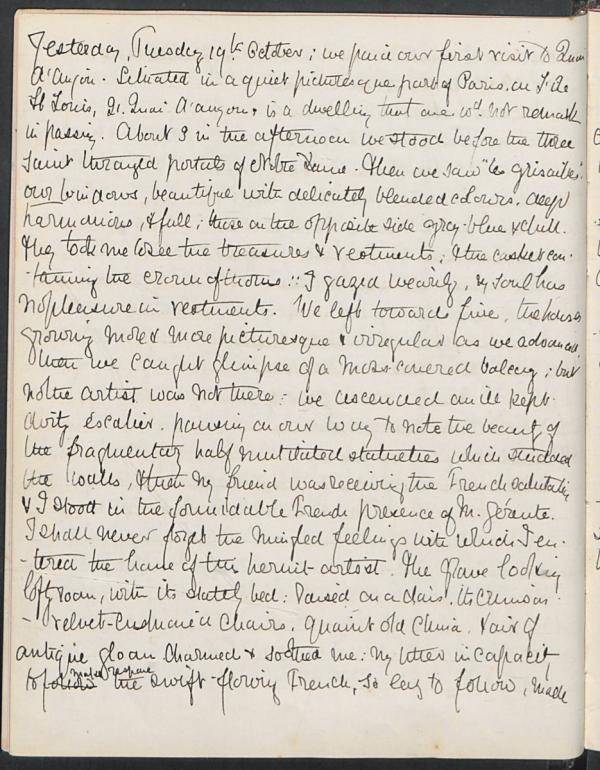 Yesterday, Tuesday 19th October; we paid our first visit to Quai
d'Anjou. Situated in a quiet picturesque part of Paris, on I. de
St Louis, 21. Quai d'anjou, is a dwelling that one wd. not remark
in passing. About 3 in the afternoon we stood before the three
saint thronged portals of Notre Dame. Then we saw "les grisailles",
our windows, beautiful with delicately blended colours, deep
harmonious, & full; those on the opposite side grey-blue & chill.
They took me to see the treasures & vestments; & the casket con-
-taining the crown of thorns::: I gazed wearily, my soul has
no pleasure in vestments. We left towards five, the houses
growing more & more picturesque & irregular as we advanced,
then we caught glimpse of a moss-covered balcony; but
no the artist was not there: we ascended an ill kept
dirty escalier. pausing on our way to note the beauty of
the fragmentary half mutilated statuettes which studded
the walls, & then my friend was receiving the French salutation
& I stood in the formidable French presence of M. Gérante.
I shall never forget the mingled feelings with which I en-
-tered the home of this hermit-artist. The grave looking
loft room, with its stately bed: raised on a dais. Its crimson
-velvet-cushioned chairs. quaint old China. & air of
antique gloom charmed & soothed me: my utter incapacity
to make response the swift-flowing French, so easy to follow, made